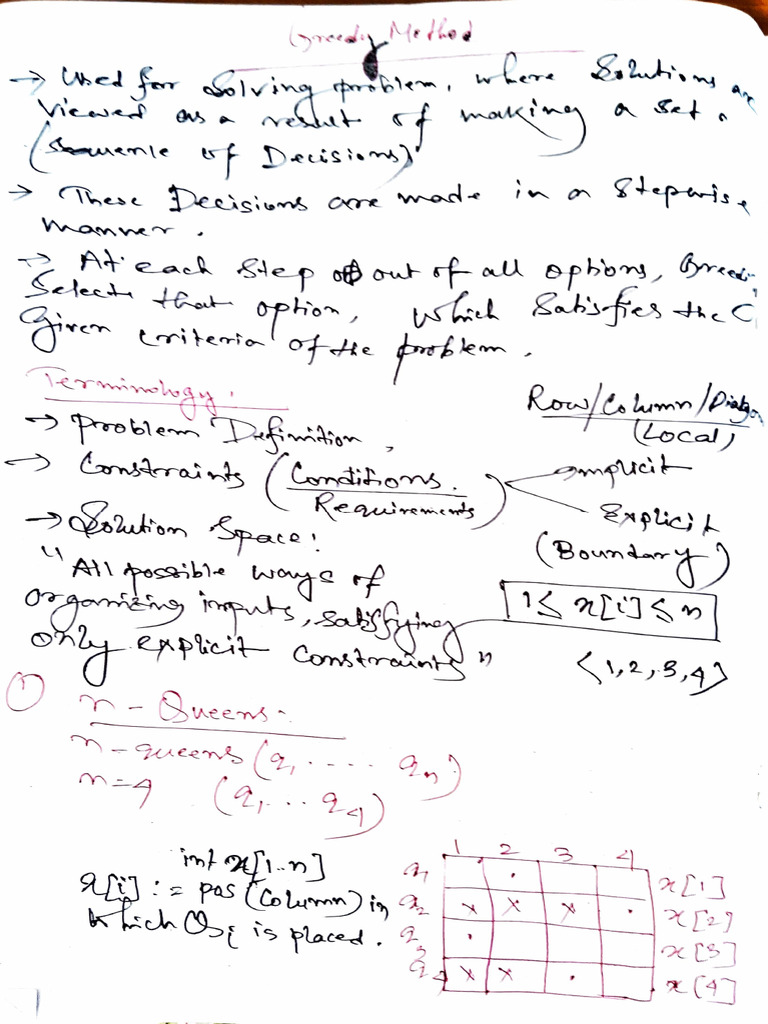 Greedy Method
→ Used for Solving problem, where Solutions are
Viewed as a result of making a set.
(Sequence of Decisions)
→ These Decisions are made in a Stepwise
manner.
→ At each Step out of all options, Greedy
Selects that option, which Satisfies the
Given criteria of the problem.
Terminology.
→ Problem Definition,
→ Constraints (Conditions. / Requirements)
Row/Column/Diagon
(Local)
Implicit
Explicit
(Boundary)
→ Solution Space:
"All possible ways of
organizing inputs, satisfying
only explicit Constraints"
1 ≤ x[i] ≤ n
<1, 2, 3, 4>
① n - Queens.
n - queens (q1 ..... qn)
n=4 (q1 ... q4)
int x[1..n]
x[i] := pos (Column) in
which Qi is placed.
1 2 3 4
q1 . x[1]
q2 x x x . x[2]
q3 . x[3]
q4 x x . x[4]